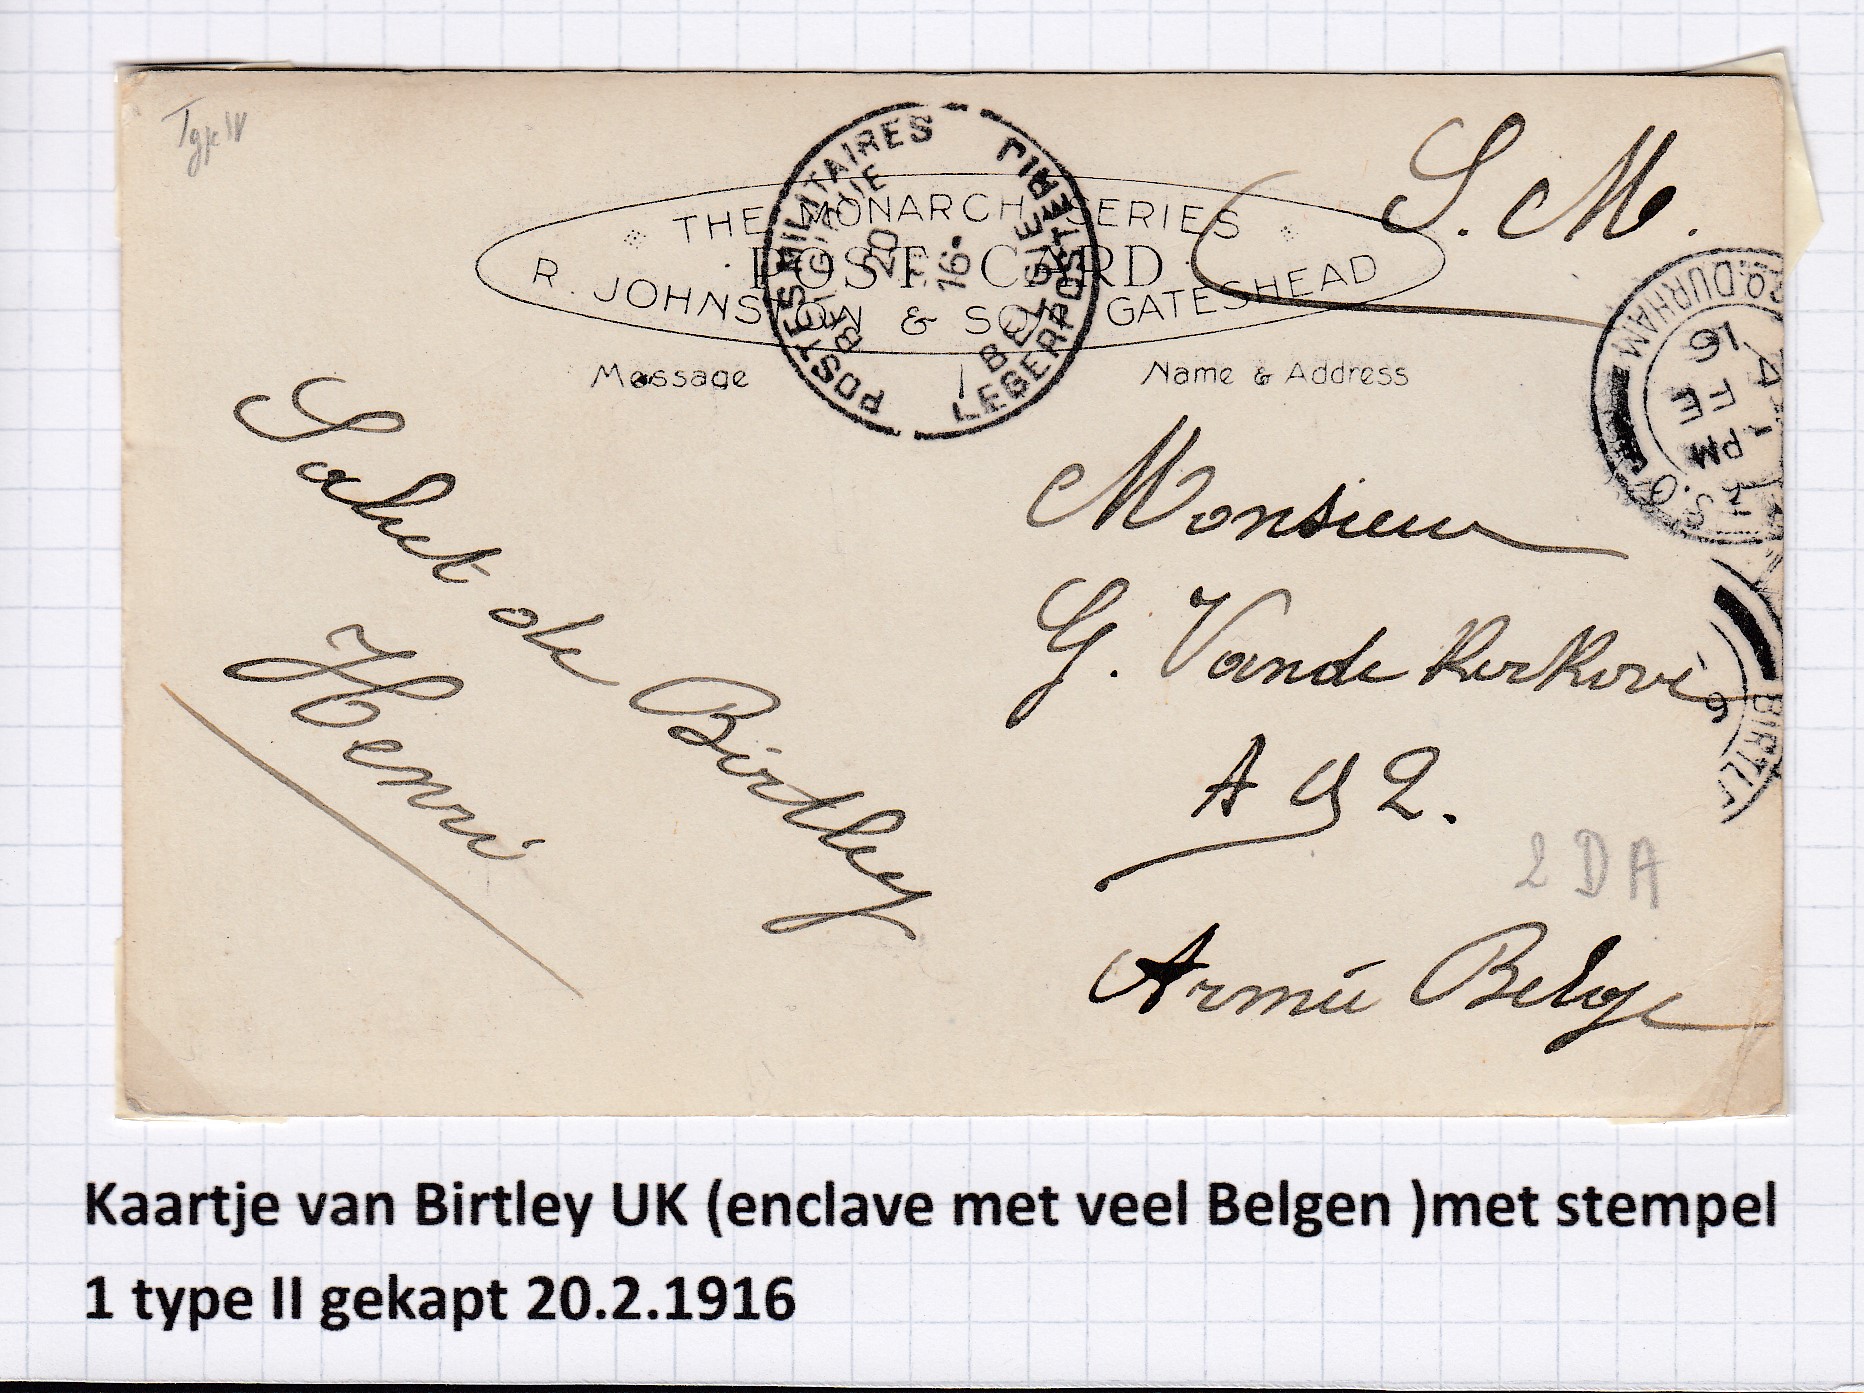 Tgk IV
S.M.
THE MONARCH SERIES
POST CARD
R. JOHNSTON & SON GATESHEAD
POSTES MILITAIRES
BELGIQUE
20
16
BELGIE
LEGERPOSTERIJ
Message
Name & Address
CO. DURHAM
16
FE
PM
S.O.
BIRTLE
Salut de Birtley
Henri
Monsieur
G. Vande Kerkove
A 92.
2DA
Armée Belge
Kaartje van Birtley UK (enclave met veel Belgen )met stempel
1 type II gekapt 20.2.1916